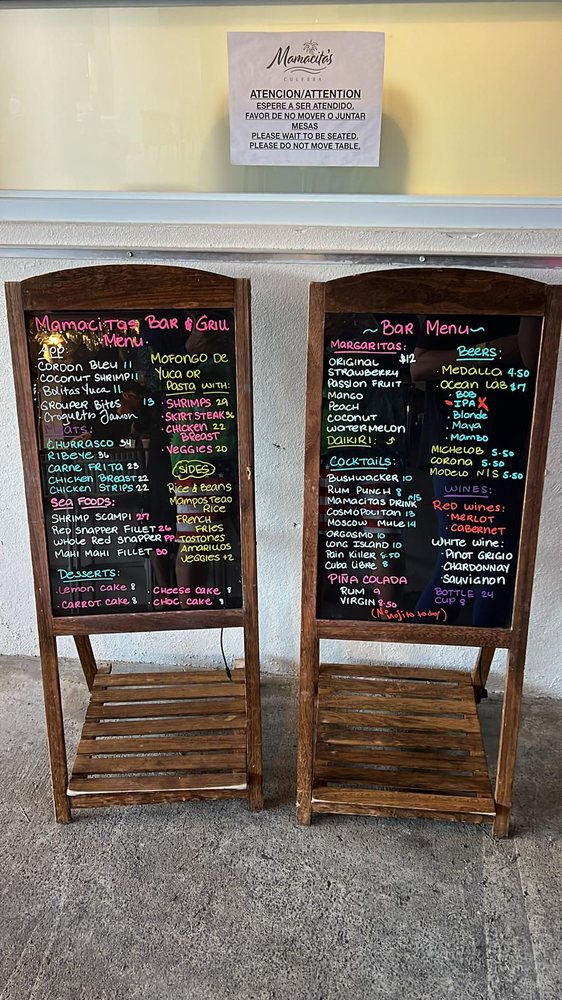 Mamacita's
CULEBRA
ATENCION/ATTENTION
ESPERE A SER ATENDIDO.
FAVOR DE NO MOVER O JUNTAR
MESAS
PLEASE WAIT TO BE SEATED.
PLEASE DO NOT MOVE TABLE.
Mamacitas Bar & Grill
Menu.
App:
Cordon Bleu 11
Coconut Shrimp 11
Bolitas Yuca 11
Grouper Bites 13
Croquetas Jamon
Churrasco 34
Ribeye 36
Carne Frita 23
Chicken Breast 22
Chicken Strips 22
Sea Foods:
Shrimp Scampi 27
Red Snapper Fillet 26
Whole Red Snapper PP.
Mahi Mahi Fillet 30
Desserts:
Lemon Cake 8
Carrot Cake 8
Mofongo de
Yuca or
Pasta with:
Shrimps 29
Skirt Steak 36
Chicken 22
Breast
Veggies 20
Sides
Rice & Beans
Mamposteao
Rice
French
Fries
Tostones
Amarillos
Veggies +2
Cheese Cake 8
Choc. Cake 8
~Bar Menu~
Margaritas: $12
Original
Strawberry
Passion Fruit
Mango
Peach
Coconut
Watermelon
Daikiri:
Cocktails:
Bushwacker 10
Rum Punch 8
Mamacitas Drink N/S
Cosmopolitan 13
Moscow Mule 14
Orgasmo 10
Long Island 10
Pain Killer
Cuba Libre 8
Piña Colada
Rum 9
Virgin 8.50
(No Mojito today)
Beers:
Medalla 4.50
Ocean Lab $7
Bob
IPA X
Blonde
Maya
Mambo
Michelob 5.50
Corona 5.50
Modelo N/S 5.50
Wines:
Red Wines:
Merlot
Cabernet
White Wine:
Pinot Grigio
Chardonnay
Sauvignon
Bottle 24
Cup 8